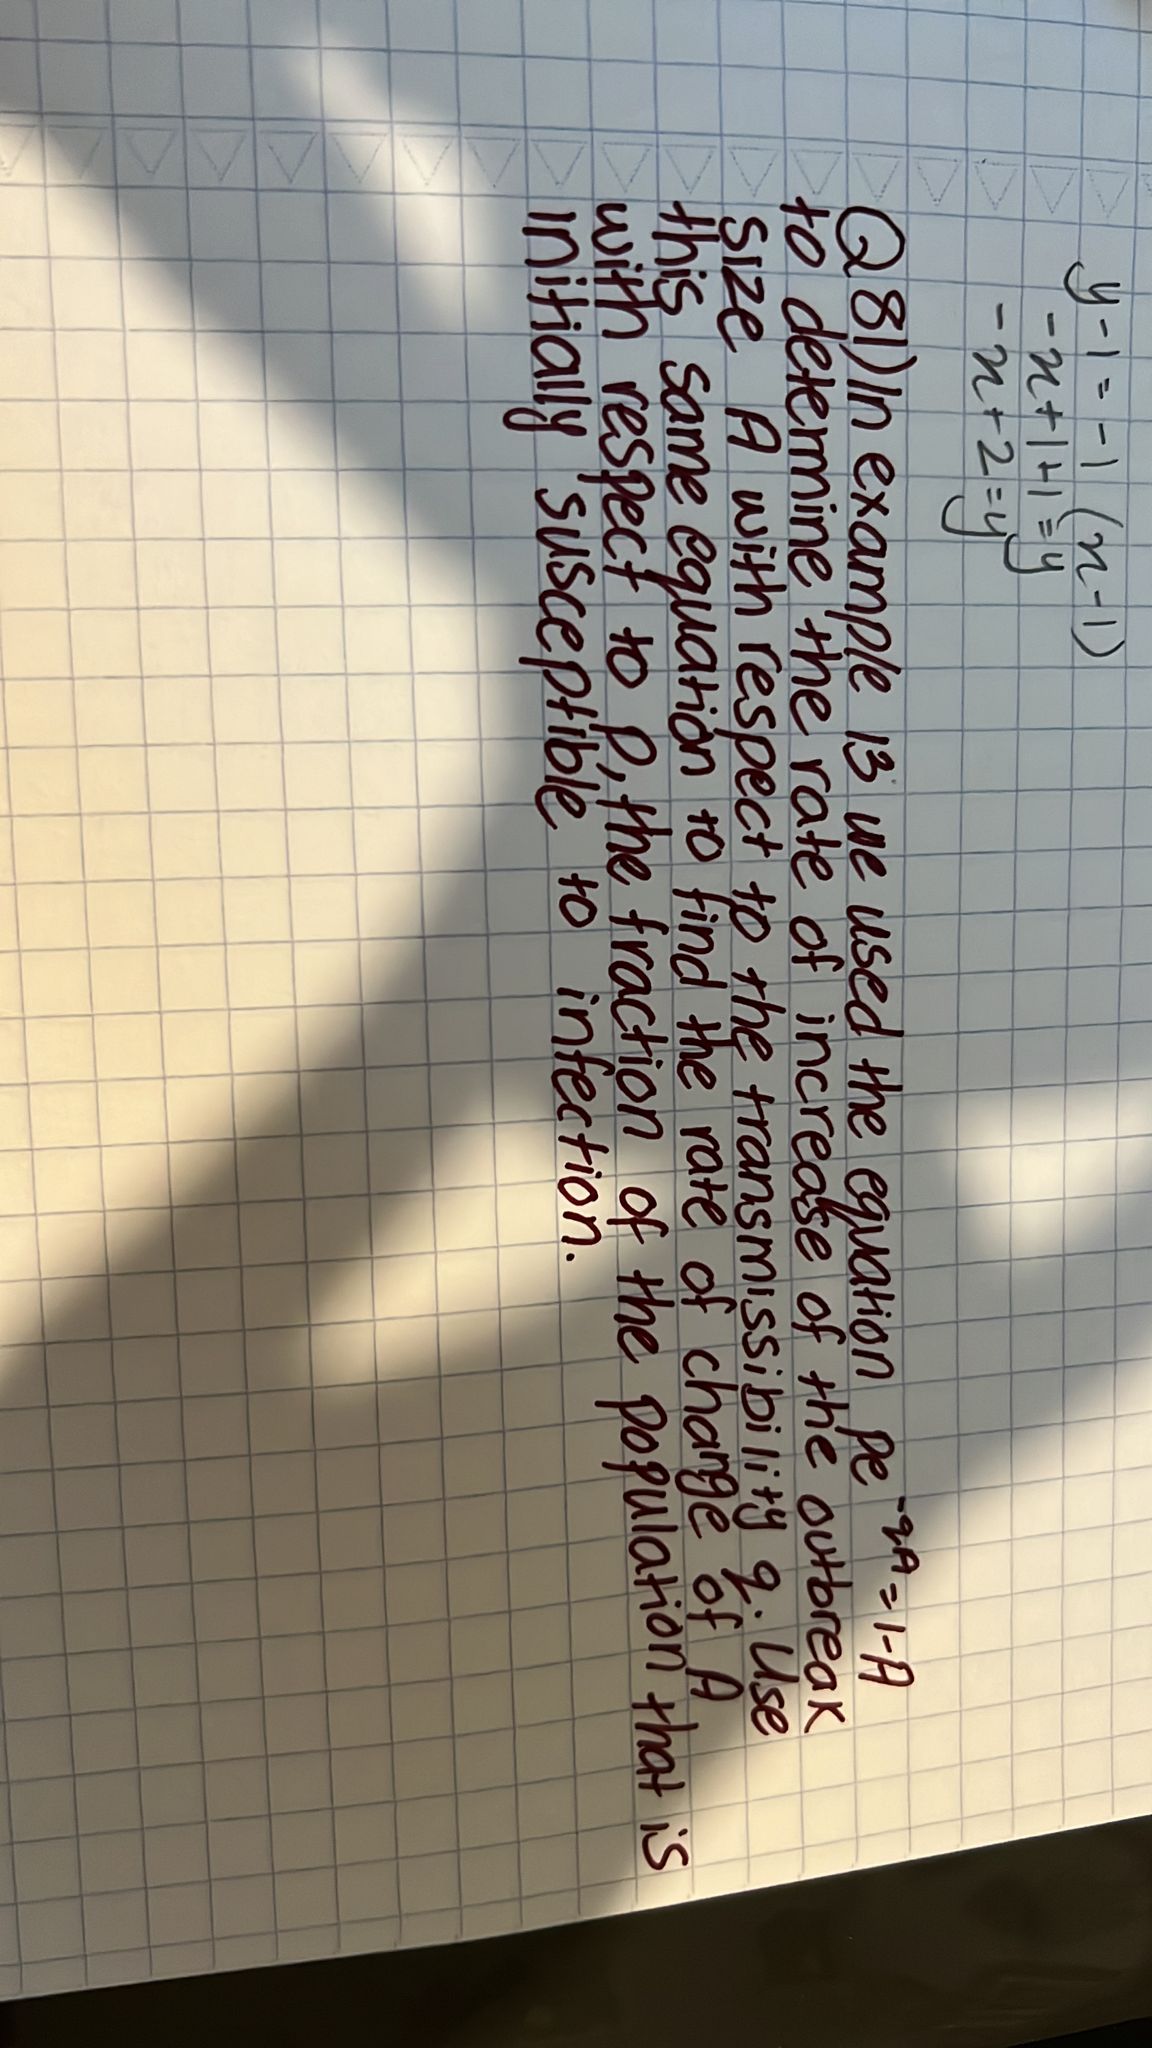 y-1=-1(x-1)
-x+1+1=y
-x+2=y
Q81) In example 13 we used the equation pe^-qA=1-A
to determine the rate of increase of the outbreak
size A with respect to the transmissibility q. Use
this same equation to find the rate of change of A
with respect to p, the fraction of the population that is
initially susceptible to infection.